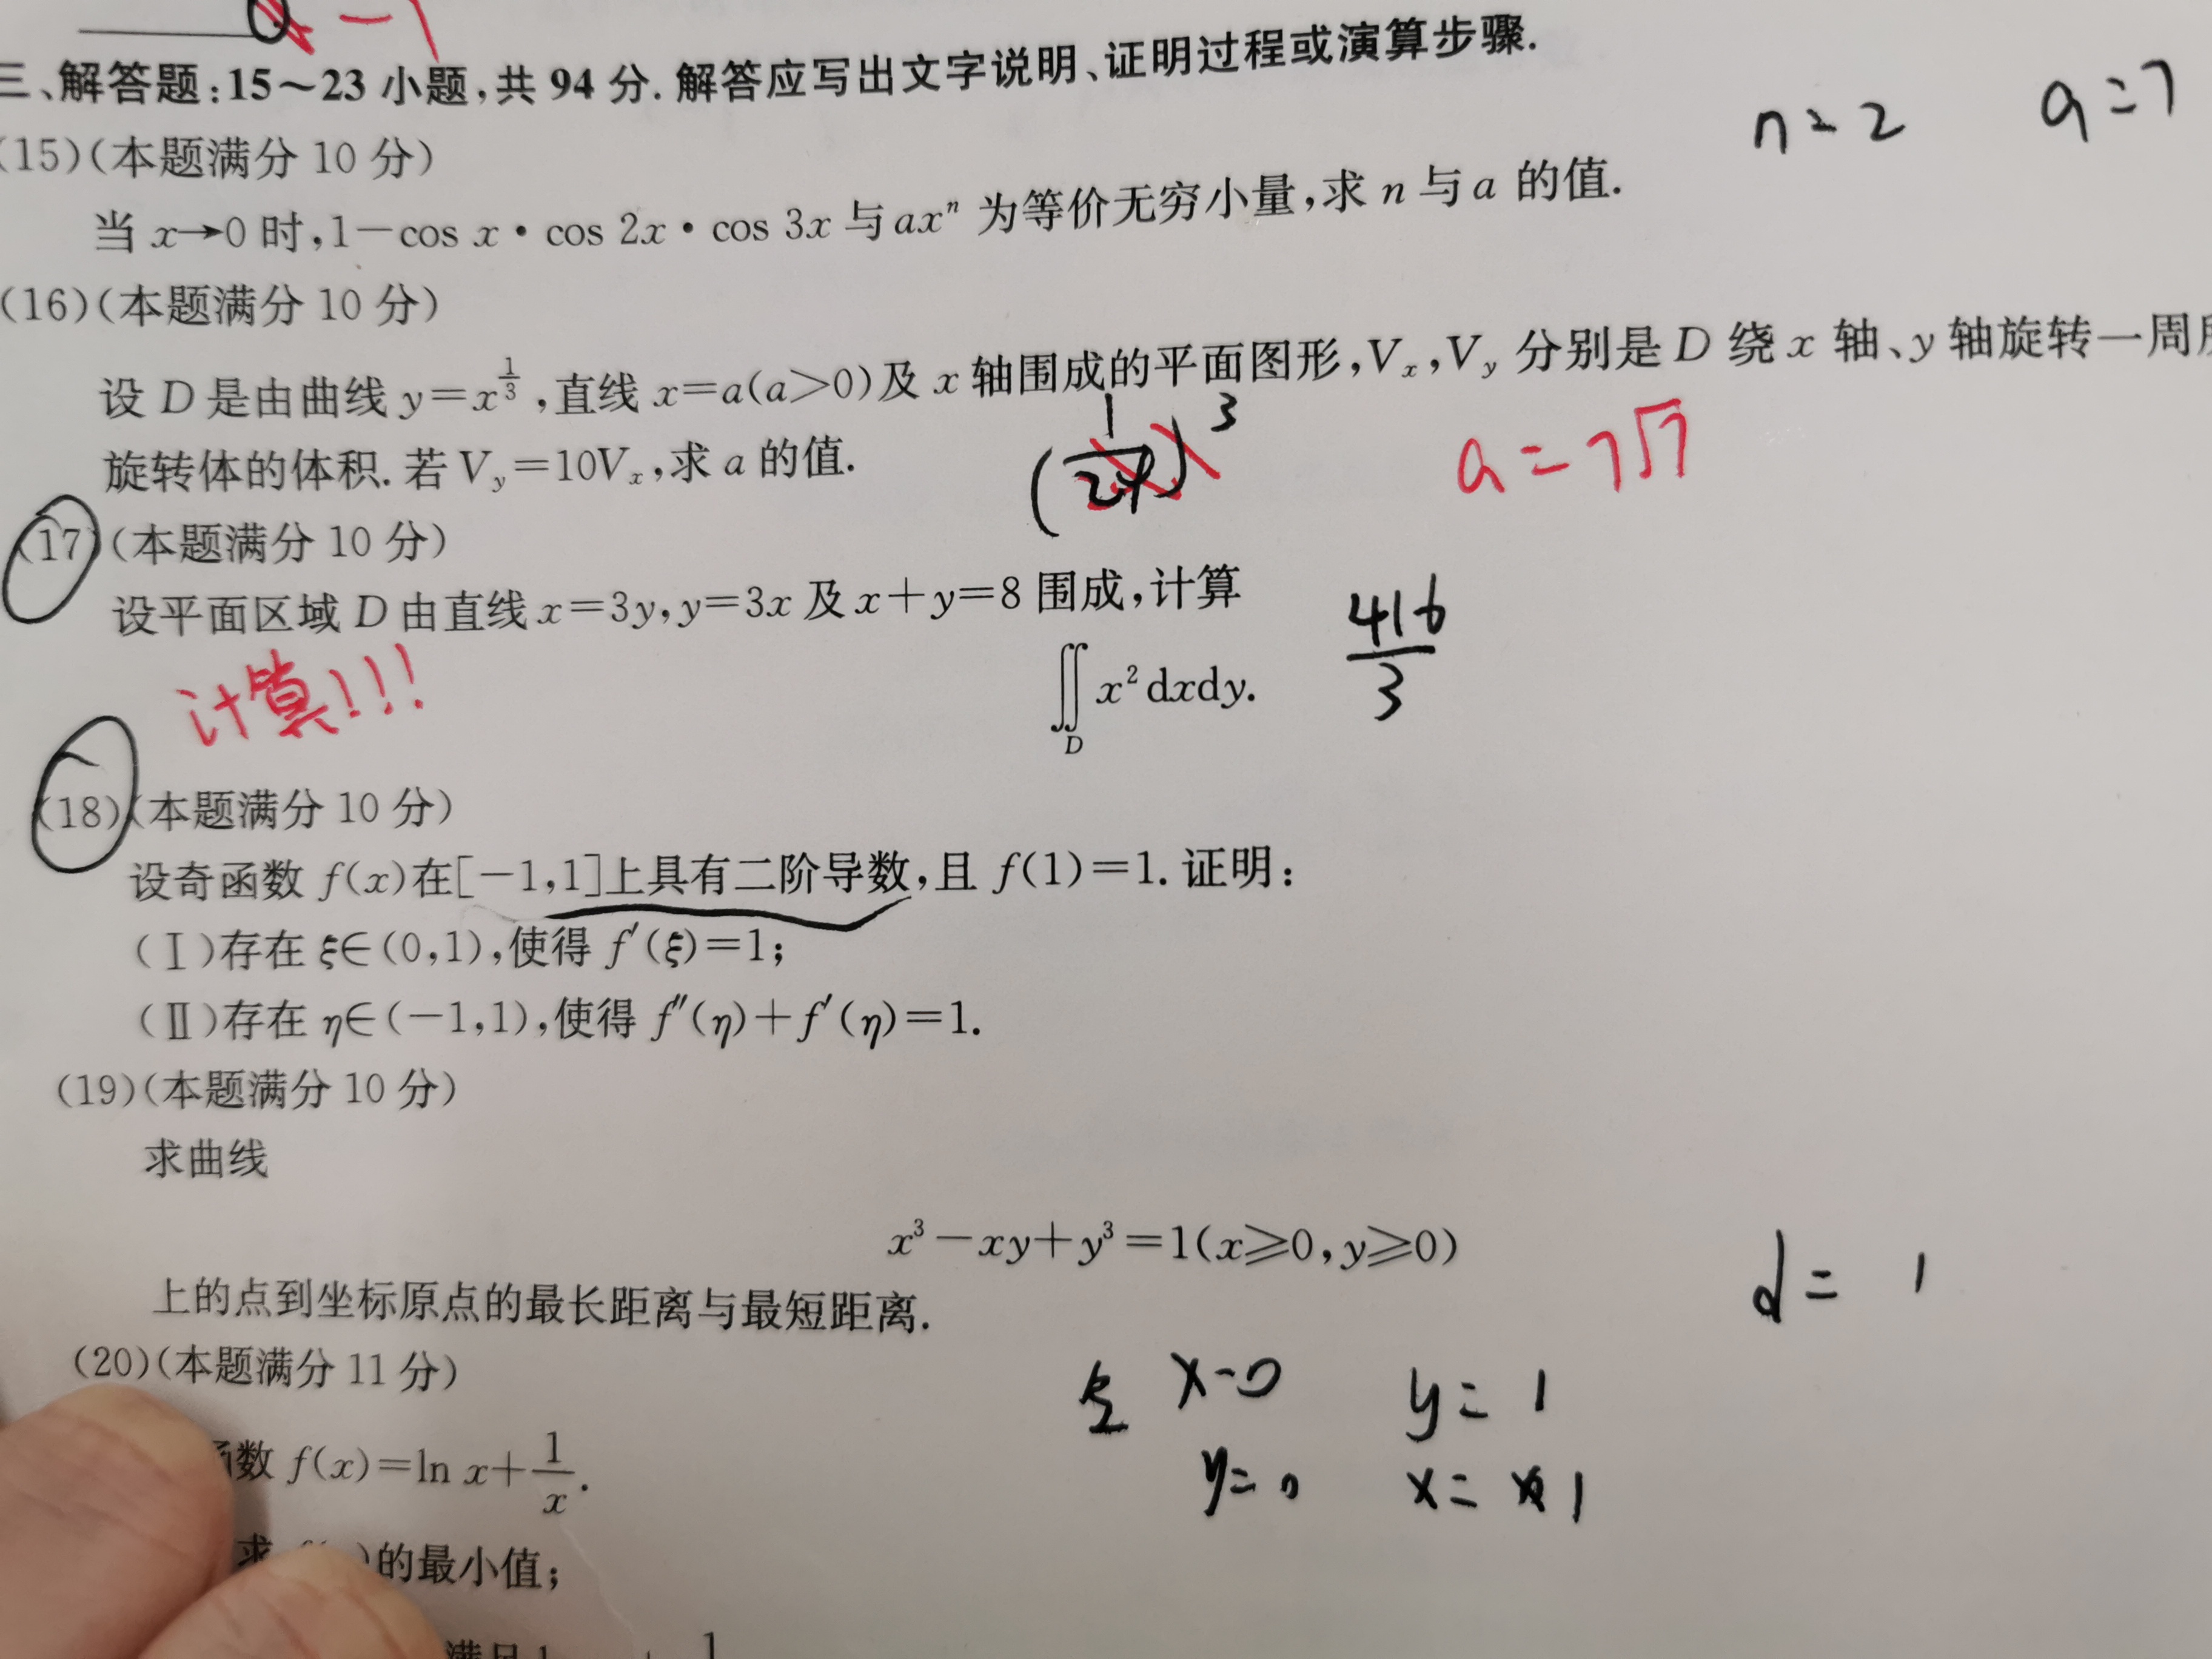 -1
三、解答题:15～23 小题,共 94 分. 解答应写出文字说明、证明过程或演算步骤.
(15)(本题满分 10 分)
n=2 a=7
当 x→0 时,1－cos x·cos 2x·cos 3x 与 axⁿ 为等价无穷小量,求 n 与 a 的值.
(16)(本题满分 10 分)
设 D 是由曲线 y=x^{1/3},直线 x=a(a>0)及 x 轴围成的平面图形,Vₓ,V_y 分别是 D 绕 x 轴、y 轴旋转一周
旋转体的体积. 若 V_y=10Vₓ,求 a 的值.
a=7√7
(17)(本题满分 10 分)
设平面区域 D 由直线 x=3y,y=3x 及 x+y=8 围成,计算
∬_D x² dxdy.
416/3
计算!!!
(18)(本题满分 10 分)
设奇函数 f(x)在[－1,1]上具有二阶导数,且 f(1)=1. 证明:
(Ⅰ)存在 ξ∈(0,1),使得 f′(ξ)=1;
(Ⅱ)存在 η∈(－1,1),使得 f″(η)+f′(η)=1.
(19)(本题满分 10 分)
求曲线
x³－xy+y³=1(x≥0,y≥0)
上的点到坐标原点的最长距离与最短距离.
d= 1
(20)(本题满分 11 分)
x=0 y=1
函数 f(x)=ln x+1/x.
y=0 x= 1
求 的最小值;